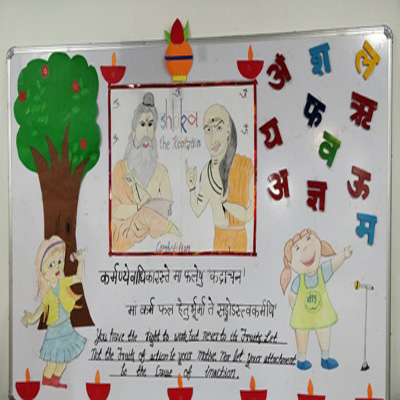 अं
श्र
ल
फ
ऋ
य
व
अ
ज्ञ
ऊ
म
shlokva
the Recitation
Competition
कर्मण्येवाधिकारस्ते मा फलेषु कदाचन।
मा कर्म फल हेतुर्भूर्मा ते सङ्गोऽस्त्वकर्मणि
You have the Right to work, but never to its Fruits. Let
Not the Fruits of action be your motive Nor let your attachment
be the Cause of inaction.